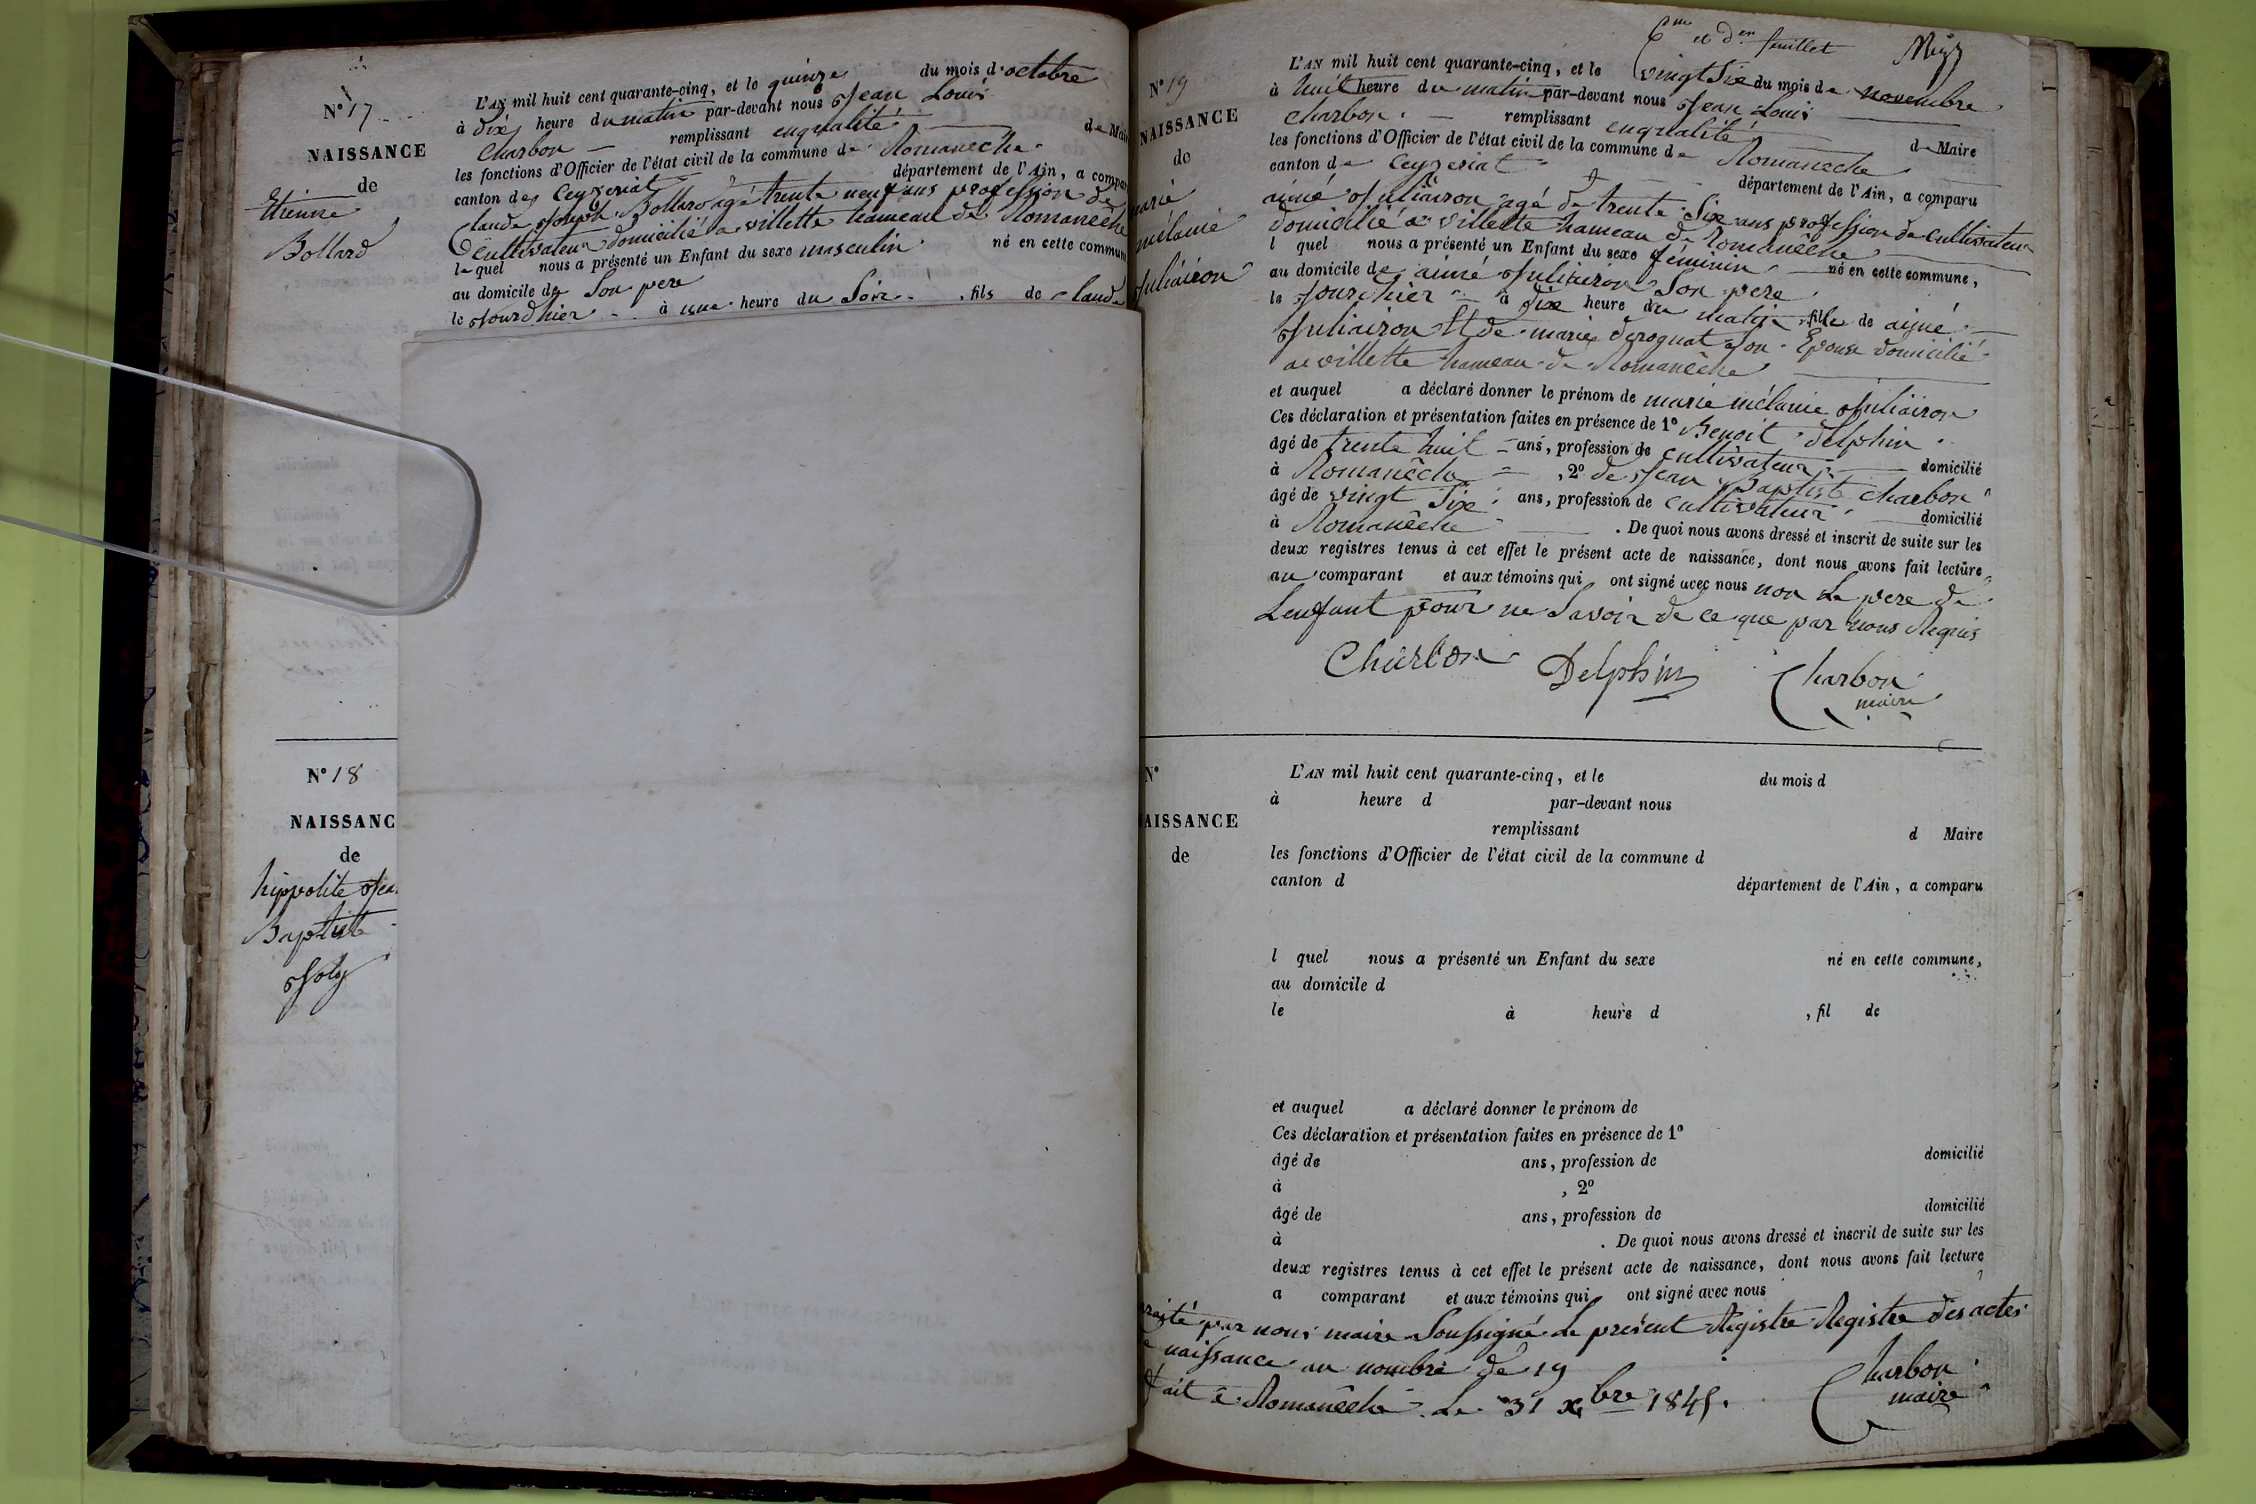 N° 17
NAISSANCE
de
Etienne
Bollard
L'AN mil huit cent quarante-cinq, et le quinze du mois d'octobre
à dix heure du matin par-devant nous Jean Louis
Charbon remplissant enqualité de Mai
les fonctions d'Officier de l'état civil de la commune de Romanèche
canton de Ceyzeriat département de l'Ain, a compar
Claude Joseph Bollard agé trente neuf ans profession de
Cultivateur domicilié a villette hameau de Romanèche
lequel nous a présenté un Enfant du sexe masculin né en cette commun
au domicile de Son pere
le jourdhier à une heure du Soir, fils de Claude
N° 18
NAISSANC
de
hippolite Jea
Baptiste
Joly
6me et der feuillet
N° 19
NAISSANCE
de
marie
mélanie
Juliairon
L'AN mil huit cent quarante-cinq, et le vingt Six du mois de novembre
à huit heure du matin par-devant nous Jean Louis
Charbon remplissant enqualité de Maire
les fonctions d'Officier de l'état civil de la commune de Romanèche
canton de Ceyzeriat département de l'Ain, a comparu
aimé Juliairon agé de trente Six ans profession de cultivateur
domicilié a villette hameau de Romanèche
l quel nous a présenté un Enfant du sexe féminin né en cette commune,
au domicile de aimé Juliairon Son pere
le jourdhier à dix heure du matin, fille de aimé
Juliairon Et de marie derognat son Epouse domicilié
a villette hameau de Romanèche
et auquel a déclaré donner le prénom de marie mélanie Juliairon
Ces déclaration et présentation faites en présence de 1° Benoit delphin
âgé de trente huit ans, profession de cultivateur domicilié
à Romanèche, 2° de Jean Baptiste Charbon
âgé de vingt Six ans, profession de cultivateur domicilié
à Romanèche. De quoi nous avons dressé et inscrit de suite sur les
deux registres tenus à cet effet le présent acte de naissance, dont nous avons fait lecture
au comparant et aux témoins qui ont signé avec nous non le pere de
Lenfant pour ne Savoir de ce que par nous Requis
Charbon Delphin Charbon
maire
N°
AISSANCE
de
L'AN mil huit cent quarante-cinq, et le du mois d
à heure d par-devant nous
remplissant d Maire
les fonctions d'Officier de l'état civil de la commune d
canton d département de l'Ain, a comparu
l quel nous a présenté un Enfant du sexe né en cette commune,
au domicile d
le à heure d, fil de
et auquel a déclaré donner le prénom de
Ces déclaration et présentation faites en présence de 1°
âgé de ans, profession de domicilié
à , 2°
âgé de ans, profession de domicilié
à . De quoi nous avons dressé et inscrit de suite sur les
deux registres tenus à cet effet le présent acte de naissance, dont nous avons fait lecture
a comparant et aux témoins qui ont signé avec nous
par nous maire Soussigné Le présent Registre Registre des actes
naissance au nombre de 19
fait a Romanèche Le 31 xbre 1845.
Charbon
maire